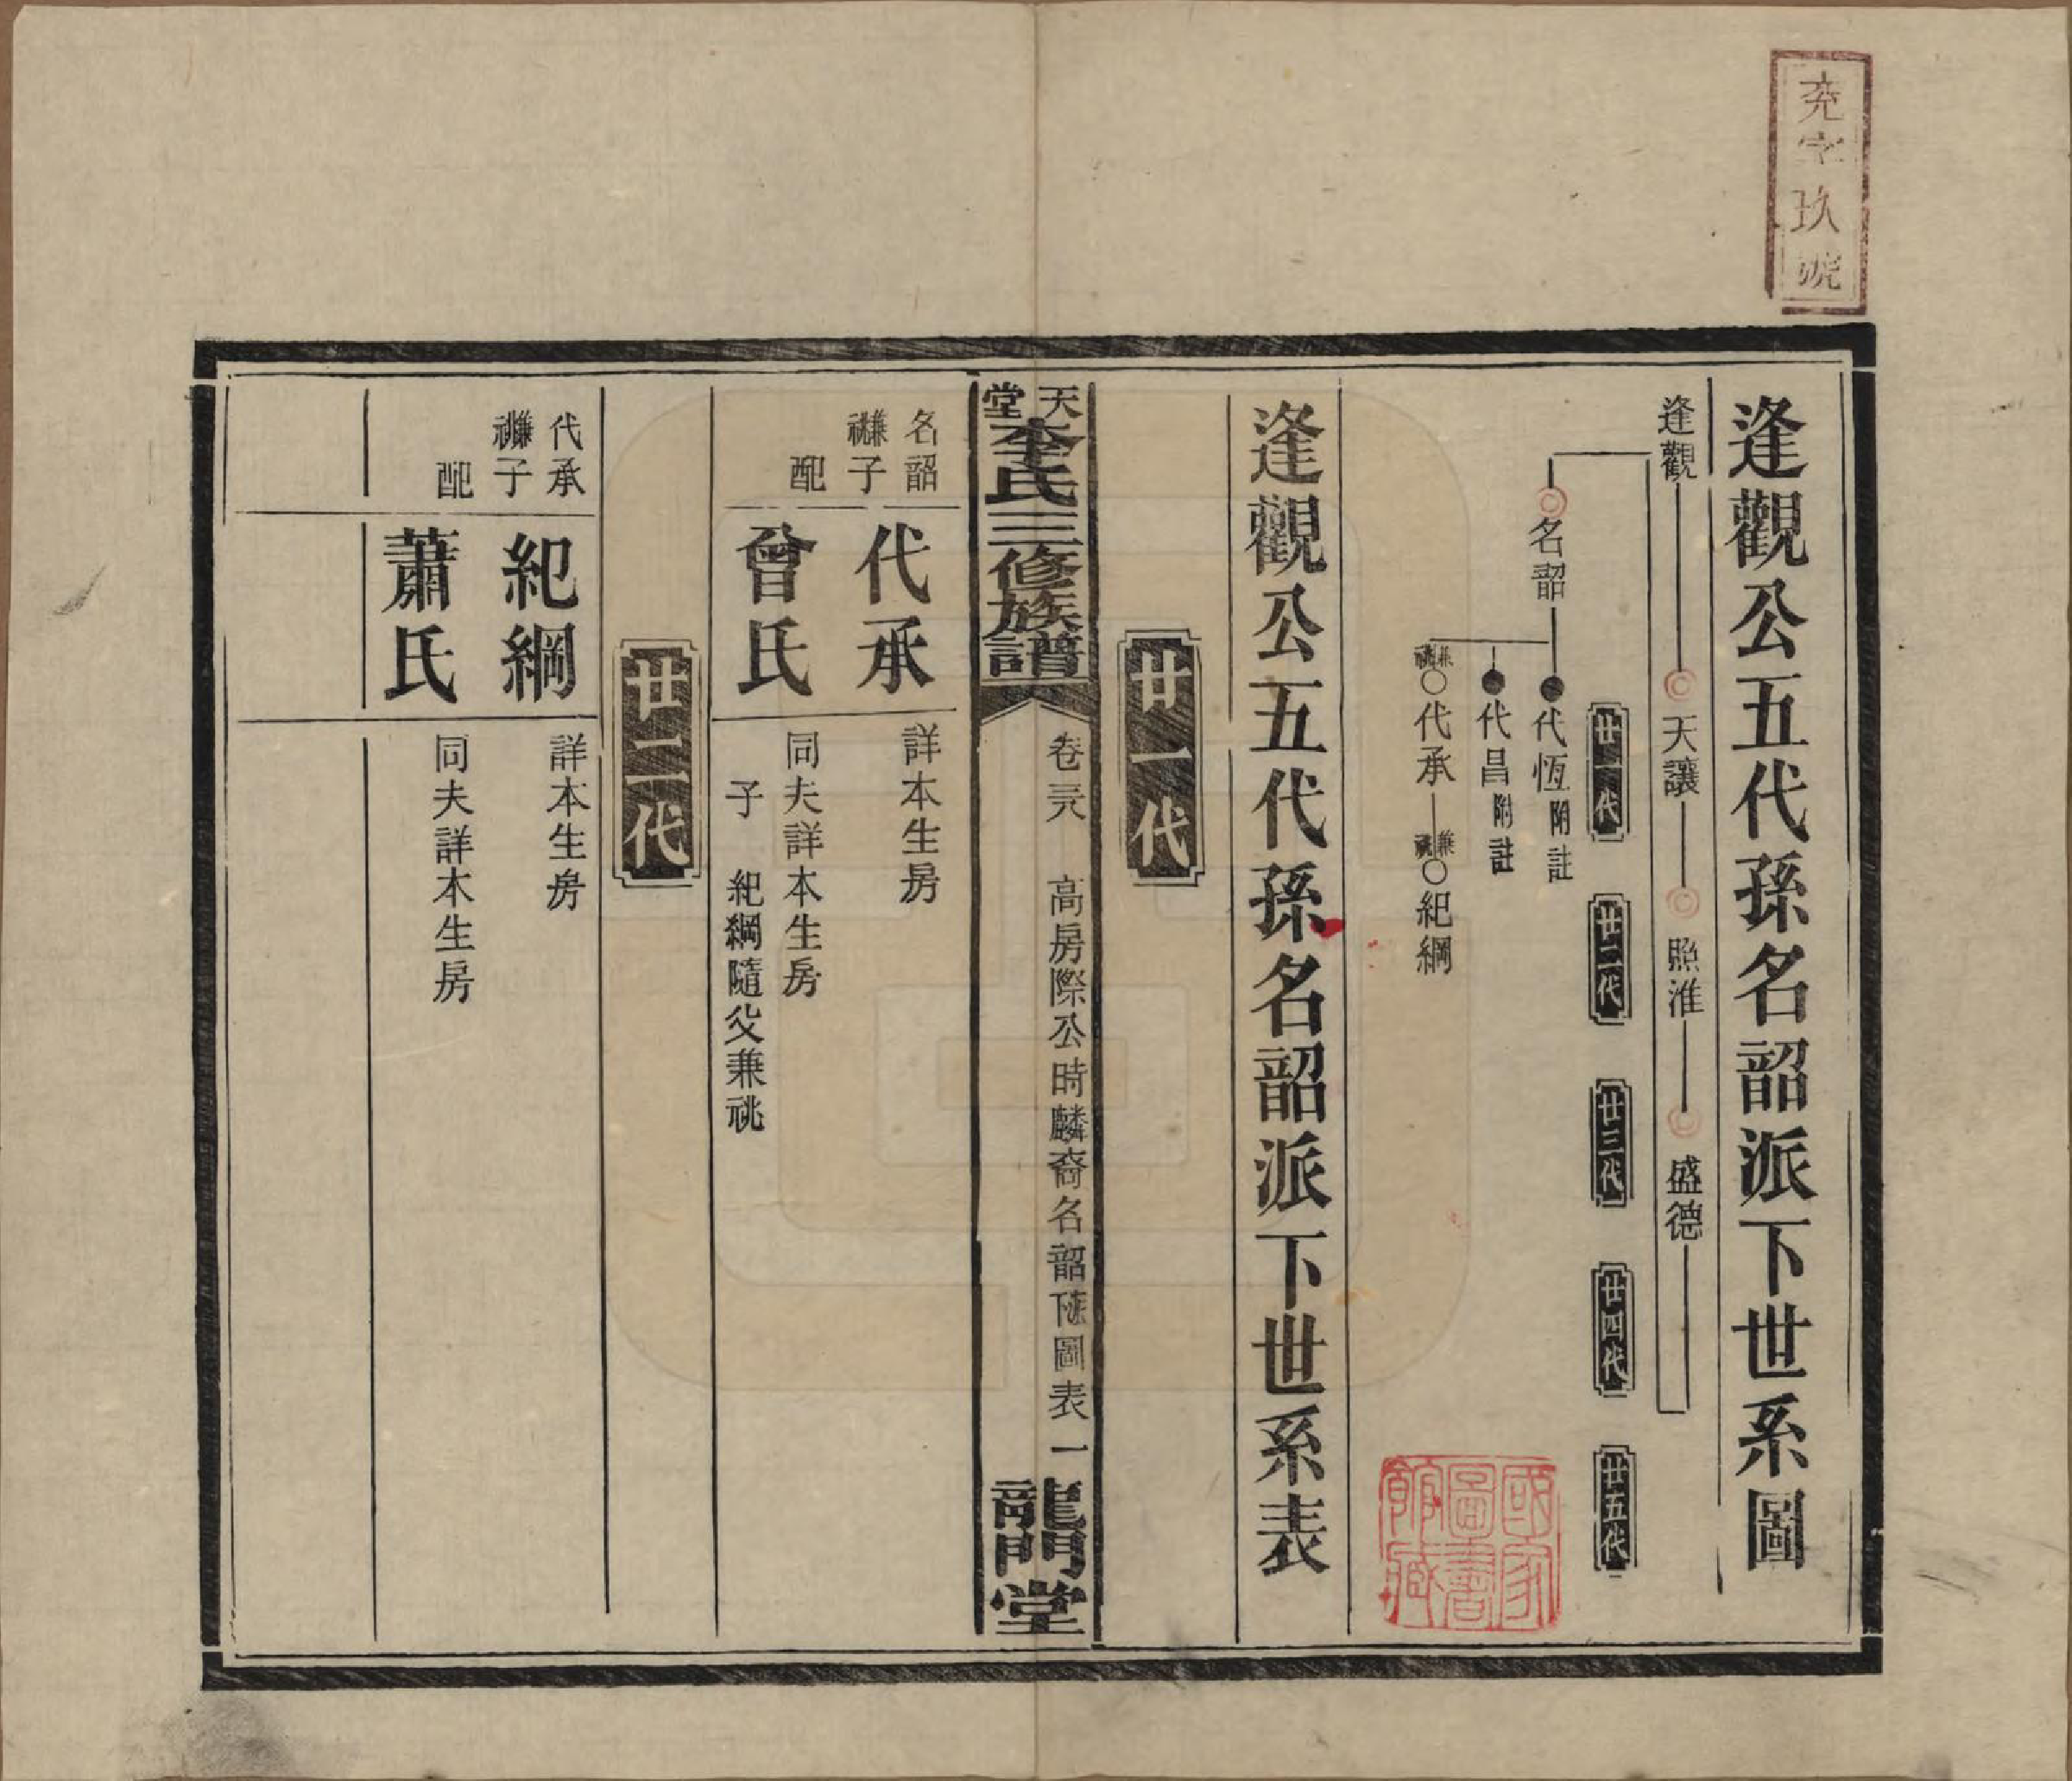 堯字玖號
逢觀公五代孫名韶派下世系圖
逢觀
天讓
照淮
盛德
廿一代
廿二代
廿三代
廿四代
廿五代
名韶
代恆 附註
代昌 附註
兼祧 代承
兼祧 紀綱
國家圖書館藏
逢觀公五代孫名韶派下世系表
廿一代
天堂李氏三修族譜
卷三 高房際公時麟裔名韶派下圖表 一
龍門堂
名韶兼祧子
代承
詳本生房
配
曾氏
同夫詳本生房
子 紀綱隨父兼祧
廿二代
代承兼祧子
紀綱
詳本生房
配
蕭氏
同夫詳本生房